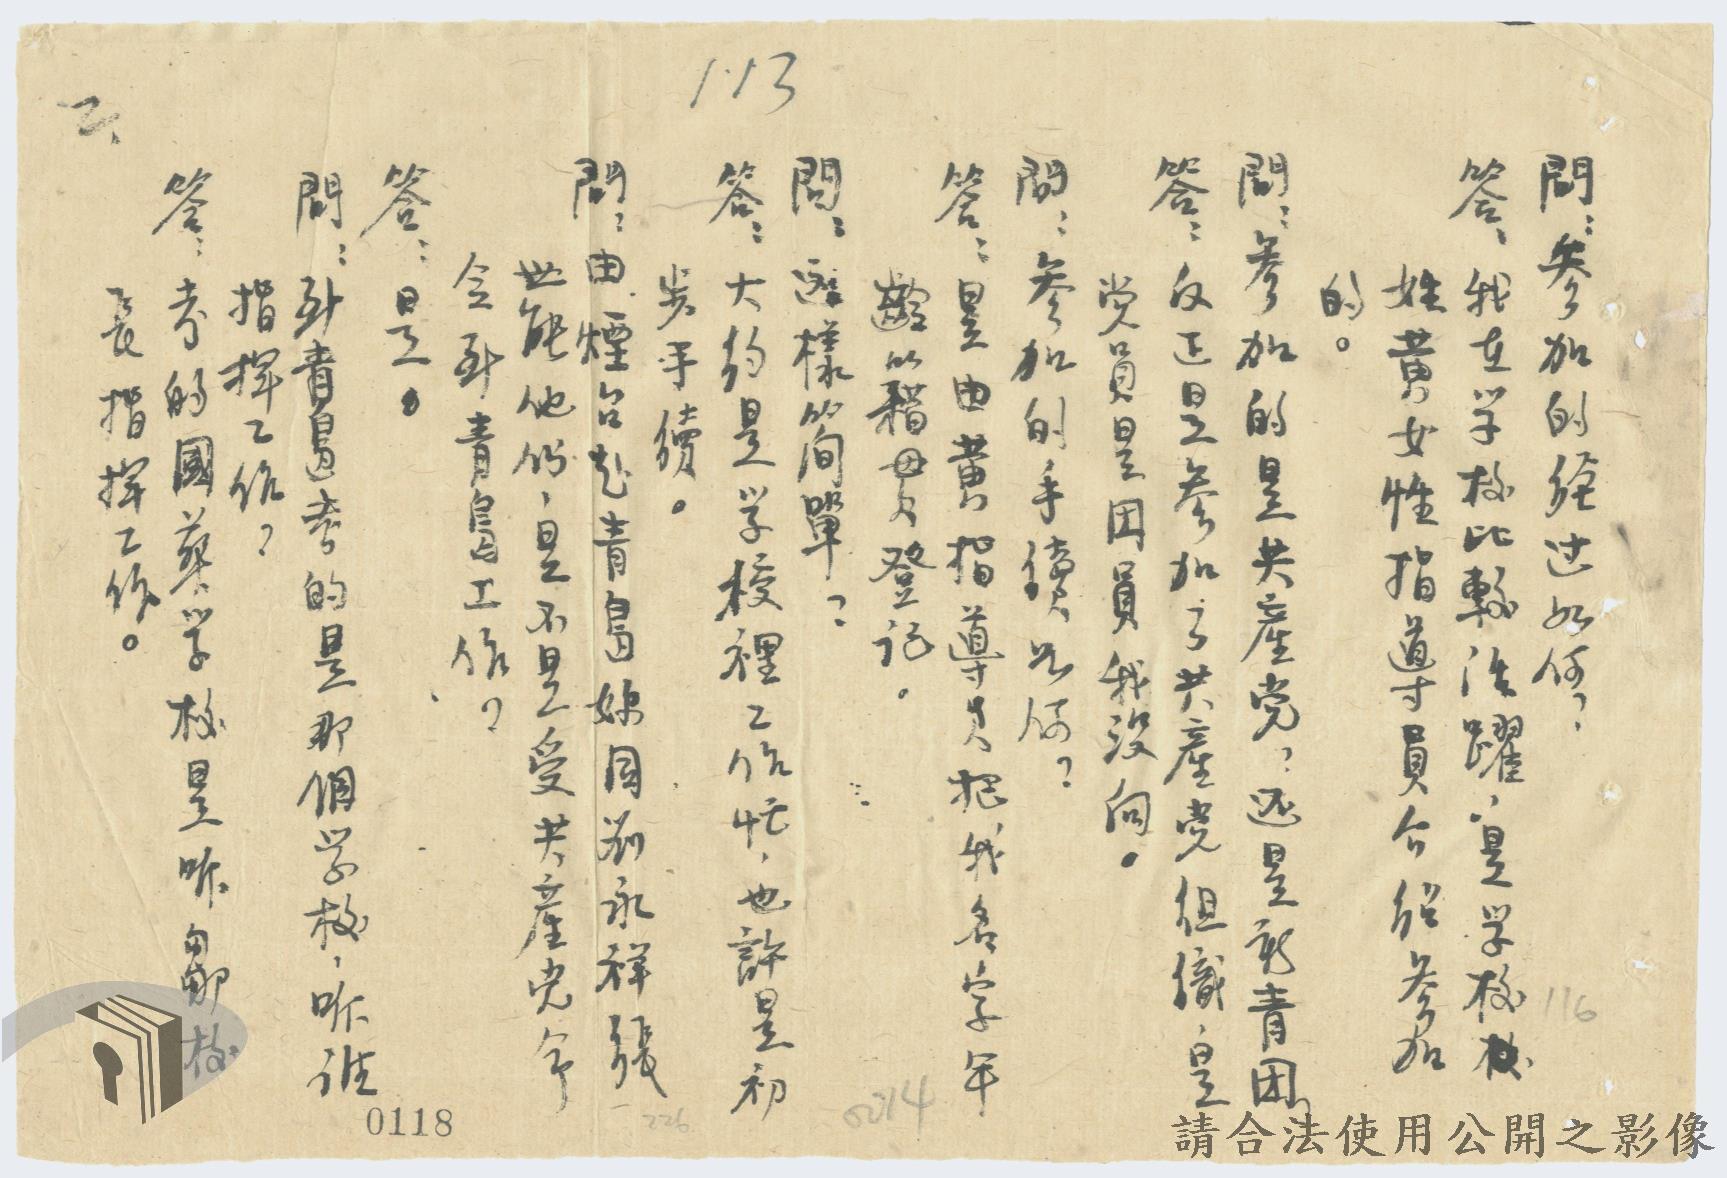 113
二、
問：参加的经过如何？
答、我在学校比較活躍，是学校
姓黄女性指導員介绍参加
的。
問：参加的是共產党？还是新青团
答：反正是参加了共產党组織，是
党員是团員我没问。
問：参加的手續如何？
答：是由黄指導員把我名字年
齡籍貫登记。
問：這樣简單？
答：大约是学校裡工作忙，也許是初
步手續。
問：由煙台赴青島妳同刘永祥張
世能他们，是不是受共產党命
令到青島工作？
答：是。
問：到青島考的是那個学校，听谁
指揮工作？
答：考的國華学校是听鄒校
長指揮工作。
116
0214
226
0118
請合法使用公開之影像